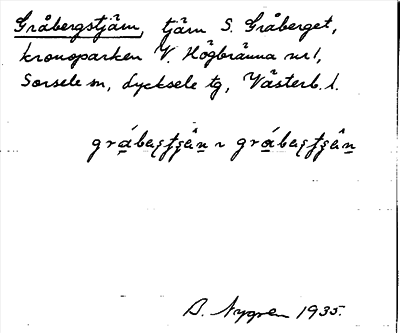 Gråbergstjärn, tjärn S. Gråberget,
kronoparken V. Högbränna nr 1,
Sorsele sn, Lycksele tg, Västerb. l.
D. Nygren 1935.